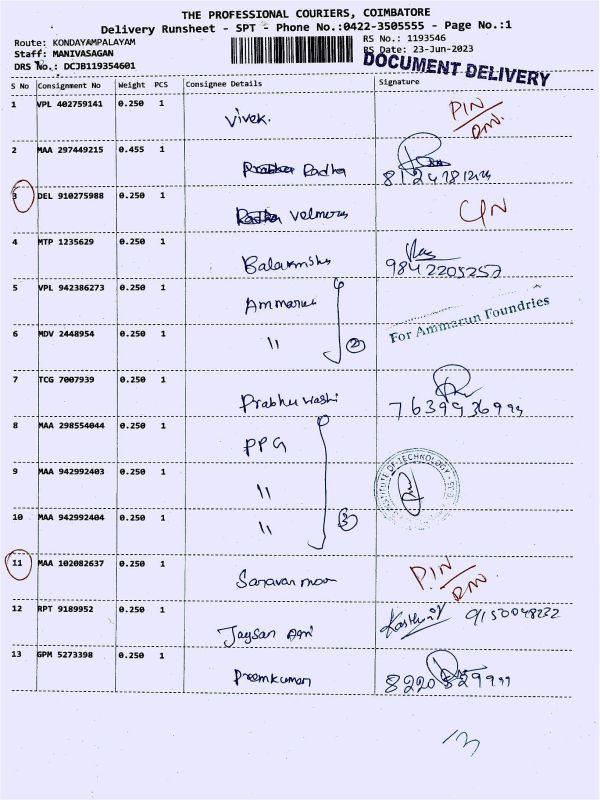 THE PROFESSIONAL COURIERS, COIMBATORE
Delivery Runsheet - SPT - Phone No.:0422-3505555 - Page No.:1
Route: KONDAYAMPALAYAM RS No.: 1193546
Staff: MANIVASAGAN RS Date: 23-Jun-2023
DRS No.: DCJB119354601 DOCUMENT DELIVERY
S No Consignment No Weight PCS Consignee Details Signature
1 VPL 402759141 0.250 1 Vivek. PIN
2 MAA 297449215 0.455 1 Radha
3 DEL 910275988 0.250 1
4 MTP 1235629 0.250 1 9842205257
5 VPL 942386273 0.250 1 For Ammarun Foundries
6 MDV 2448954 0.250 1 " 2
7 TCG 7007939 0.250 1 Prabhu
8 MAA 298554044 0.250 1 PPG
9 MAA 942992403 0.250 1 " INSTITUTE OF TECHNOLOGY
10 MAA 942992404 0.250 1 " 3
11 MAA 102082637 0.250 1 PIN
12 RPT 9189952 0.250 1 9150048232
13 GPM 5273398 0.250 1 Premkumar
13